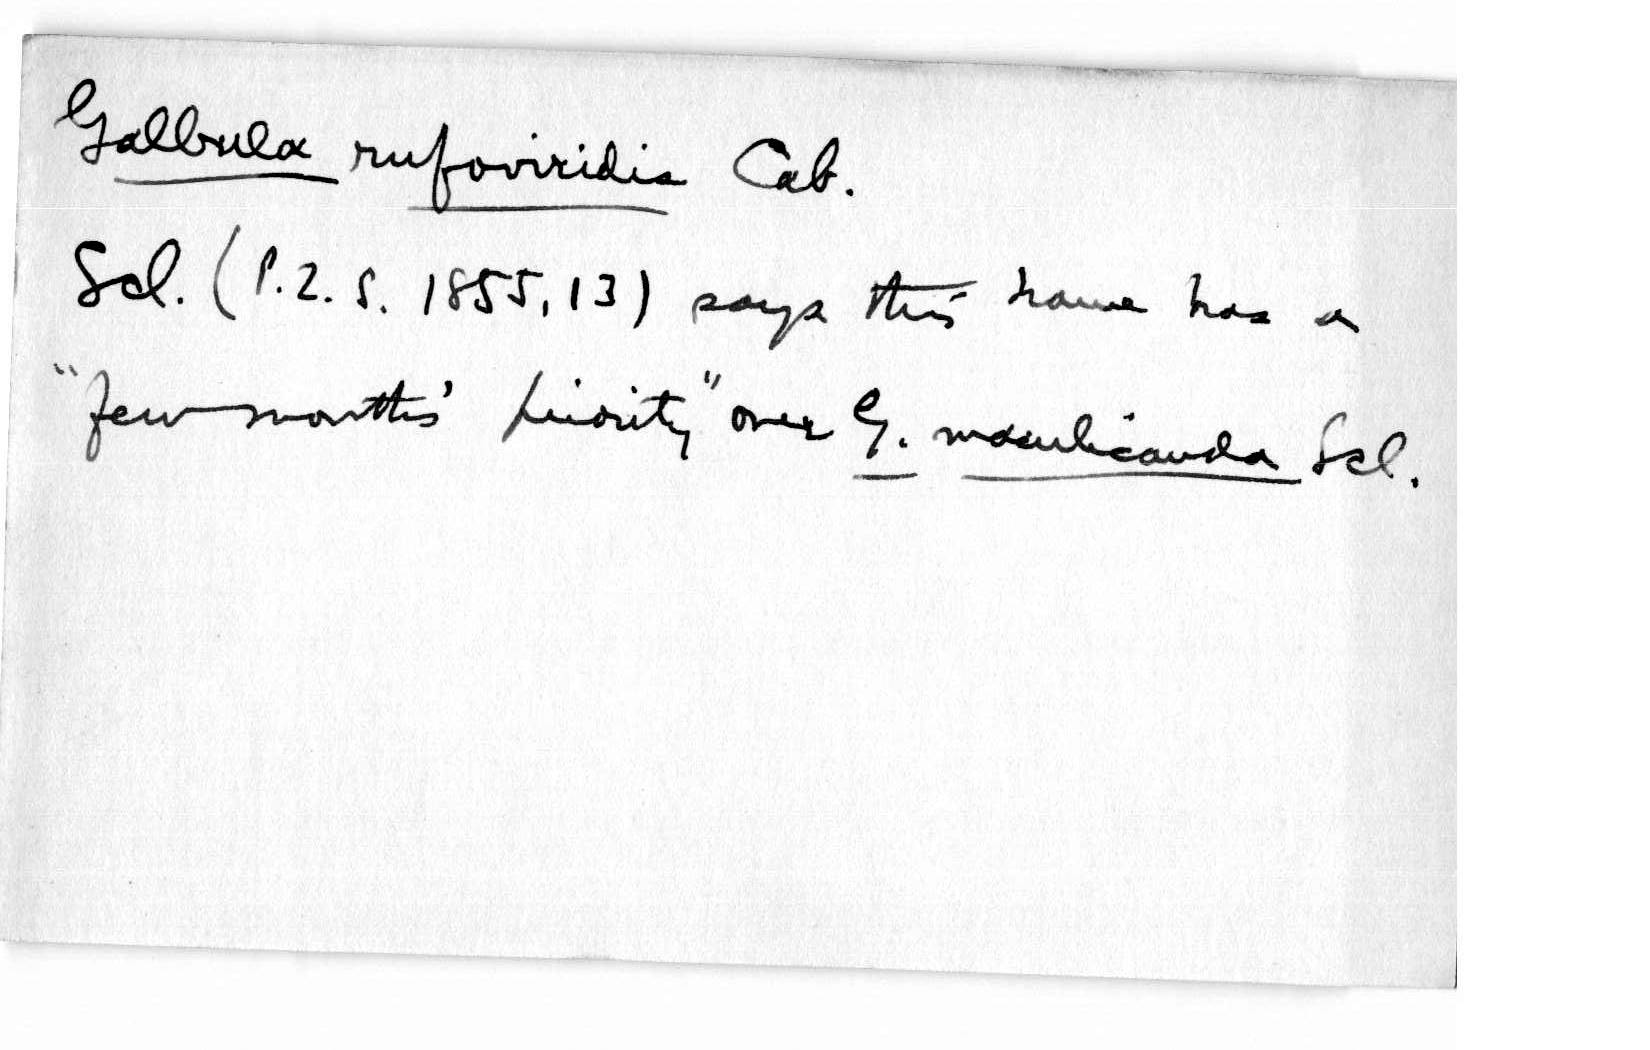 Galbula rufoviridis Cab.
Scl. (P.Z.S. 1855, 13) says this name has a
"few months' priority" over G. maculicauda Scl.